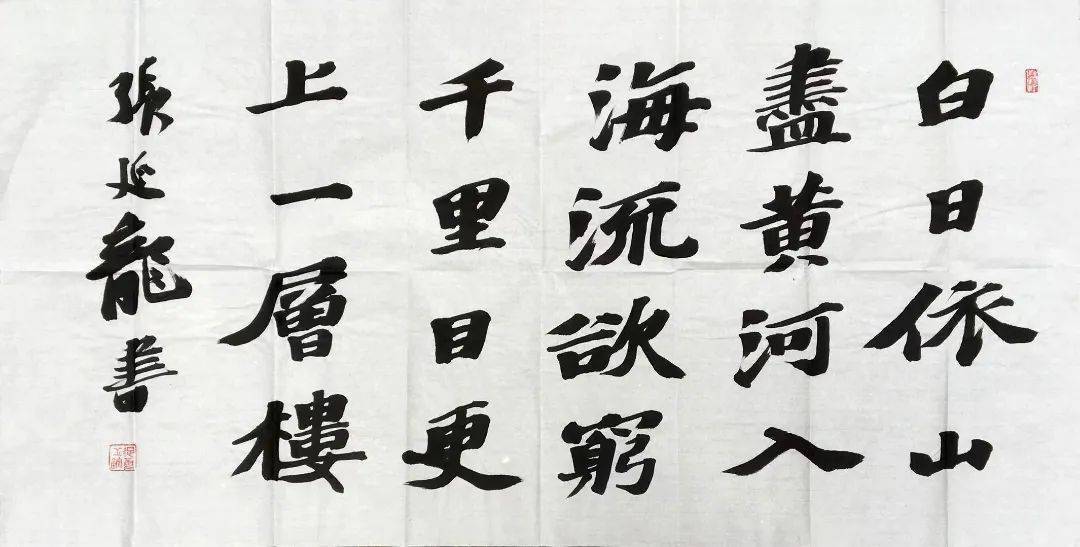 白日依山
盡黄河入
海流欲窮
千里目更
上一層樓
張延龍書